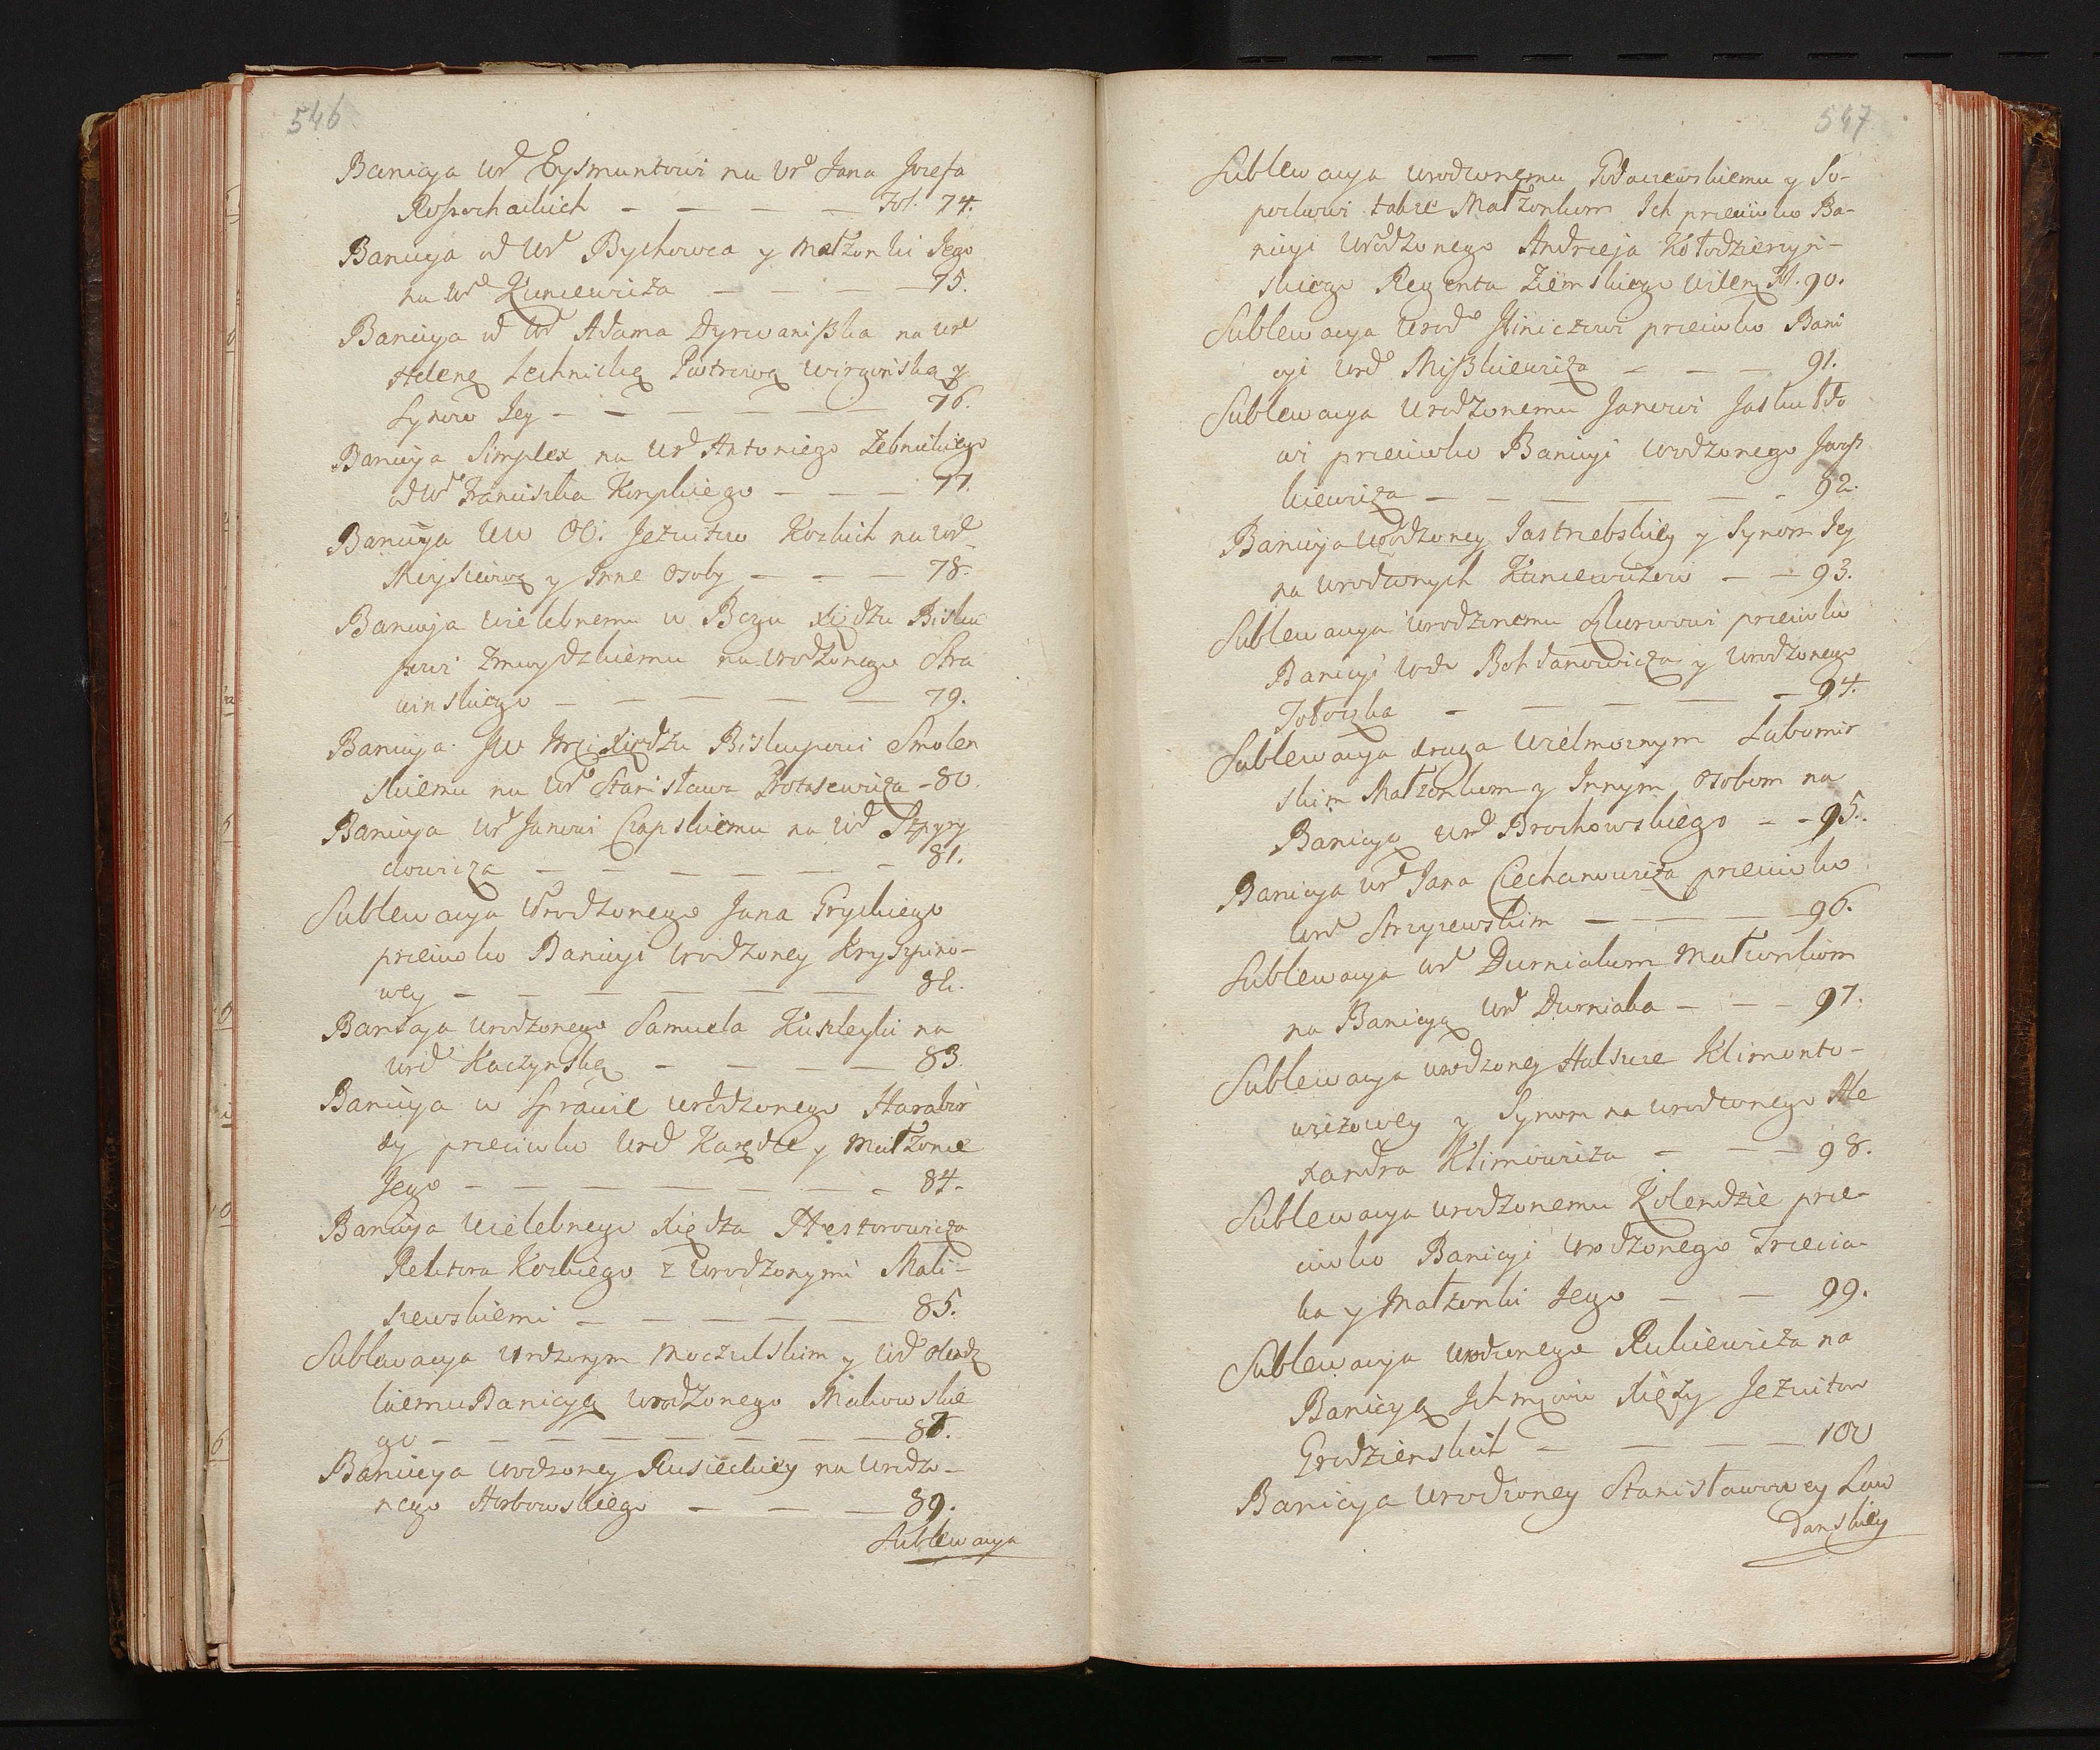 546
Banicya Urd Eysmuntowi na Urd Jana Jozefa
Rossochackich — — — — Fol. 74.
Banicya od Urd Bychowca y Małzonki Jego
na Urd Kuncewicza — — — — 75.
Banicya od Urd Adama Dyrwaniszka na Urd
Helenę Lechnicką Piotrową y
Synow Jey — — — — — — 76.
Banicya Simplex na Urd Antoniego Zebnickiego
od Urd Franciszka — — — 77.
Banicya Uw OO: Jezuitow Kozkich na Urd
y Inne Osoby — — — 78.
Banicya Wielebnemu w Bogu Xiędzu Bisku
powi Zmuydzkiemu na Urodzonego Stra
winskiego — — — — — 79.
Banicya Jw Xiędzu Biskupowi Smolen
skiemu na Urd Stanisława Protasewicza - 80.
Banicya Urd Janowi Czapskiemu na Urd Szpyry
dowicza — — — — — — 81.
Sublewacya Urodzonego Jana Gryckiego
przeciwko Banicyi Urodzoney Kryszpino-
wey — — — — — — 82.
Banicya Urodzonego Samuela Kuszleyki na
Urd Kaczynską — — — — 83.
Banicya w Sprawie Urodzonego Harabur
dy przeciwko Urd Karędze y Małzonce
Jego — — — — — — — 84.
Banicya Wielebnego Xiędza Nestorowicza
Rektora Kozkiego z Urodzonymi Mali-
szewskiemi — — — — — 85.
Sublewacya Urdzonym Moczulskim y Urd
kiemu Banicyą Urodzonego Makowskie
go — — — — — — — —
Banicya Urodzoney Rusieckiey na Urodzo-
nego Horbowskiego — — — 89.
Sublewacya
547
Sublewacya Urodzonemu Podaiewskiemu y So-
pockowi także Małżonkom Ich przeciwko Ba-
nicyi Urodzonego Andrzeja Kołodzieczyn-
skiego Regenta Ziemskiego Wilen 90.
Sublewacya Urod Iliniczowi przeciwko Bani
cyi Urd Miszkiewicza — — — 91.
Sublewacya Urodzonemu Janowi Jaskułdo
wi przeciwko Banicyi Urodzonego
kiewicza — — — — — — 92.
Banicya Urodzoney Jastrzebskiey y Synom Jey
na Urodzonych Kuncewiczow — — 93.
Sublewacya Urodzonemu przeciwko
Banicyi Urd Bohdanowicza y Urodzonego
Tołoczka — — — — — 94.
Sublewacya druga Wielmoznym Lubomir
skim Małzonkom y Innym Osobom na
Banicyą Urd Brochowskiego — — 95.
Banicya Urd Jana Ciechanowicza przeciwko
Urd Strzyzewskim — — — — 96.
Sublewacya Urd Durniakom Małzonkom
na Banicyą Urd Durniaka — — — 97.
Sublewacya Urodzoney Halszce Klimonto-
wiczowey y Synom na Urodzonego Ale
xandra Klimowicza — — — 98.
Sublewacya Urodzonemu Kolendzie prze-
ciwko Banicyi Urodzonego Trzecia-
ka y Małżonki Jego — — 99.
Sublewacya Urodzonego Rukiewicza na
Banicyą Ichmciow Xięży Jezuitow
Grodzienskich — — — — 100
Banicya Urodzoney Stanisławowey Law
danskiey